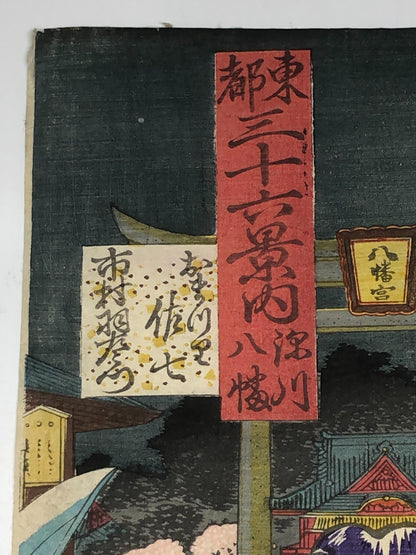 東都
三十六景内
深川
八幡
八幡宮
おまつり
佐七
市村羽左衛門